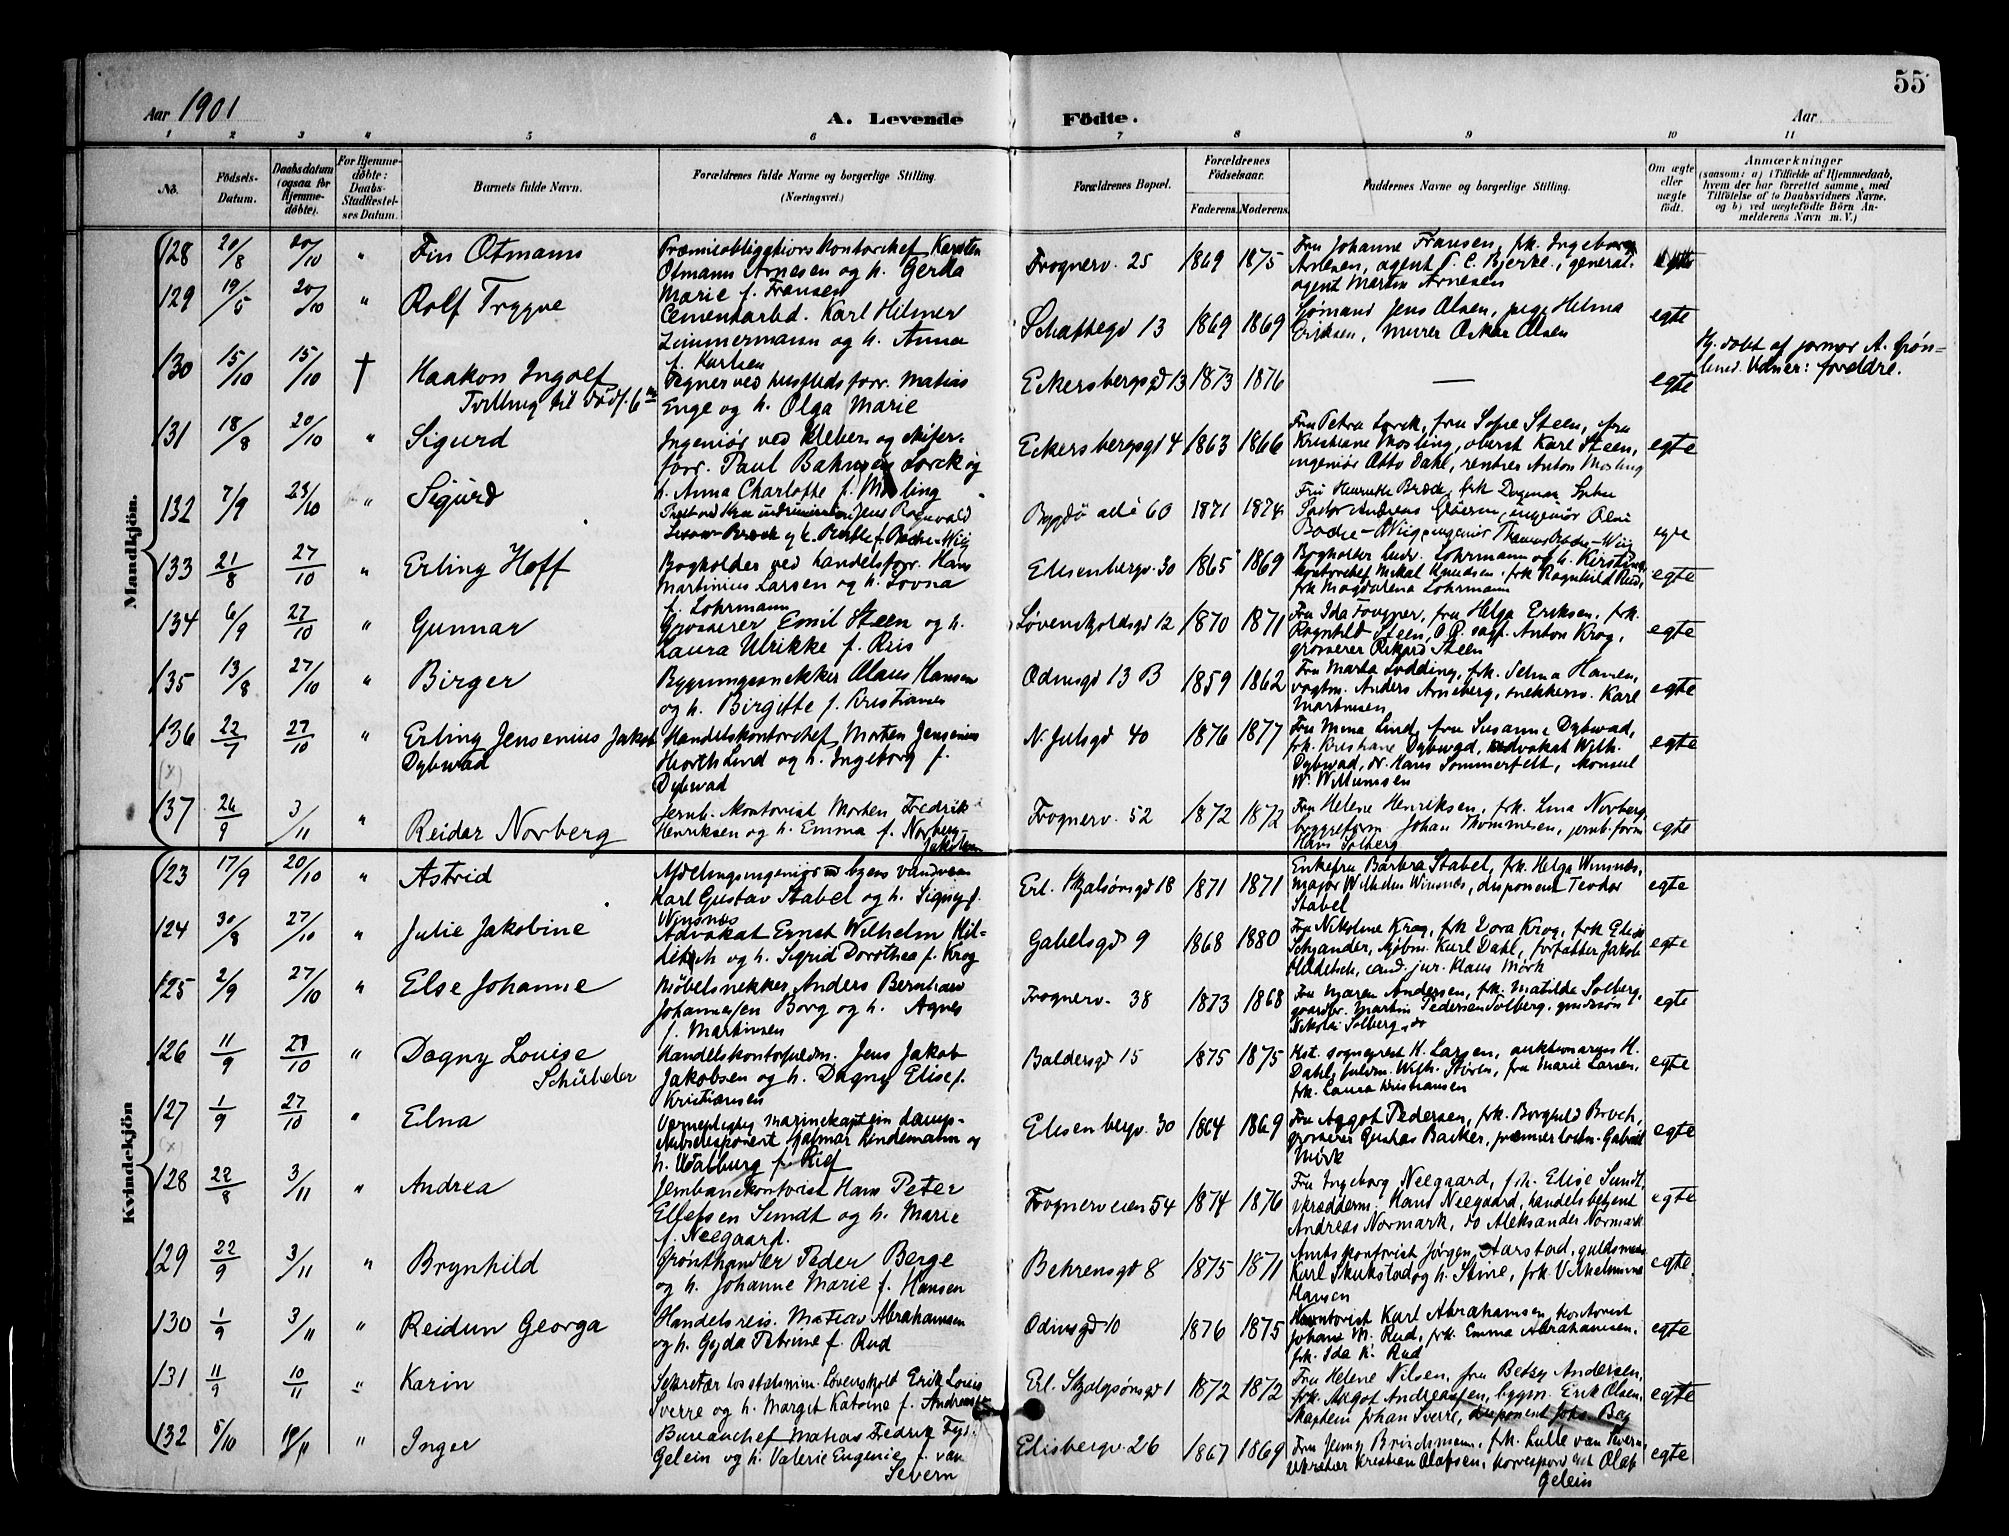 55
Aar 1901
A. Levende Födte.
Aar
1 2 3 4 5 6 7 8 9 10 11
No.
Födsels-Datum.
Daabsdatum (ogsaa for Hjemme-döbte).
For Hjemme-döbte: Daabs-Stadfæstel-ses Datum.
Barnets fulde Navn.
Forældrenes fulde Navne og borgerlige Stilling. (Næringsvei.)
Forældrenes Bopæl.
Forældrenes Födselsaar.
Faderens. Moderens.
Faddernes Navne og borgerlige Stilling.
Om ægte eller uægte födt.
Anmærkninger
(saasom: a) i Tilfælde af Hjemmedaab,
hvem der har forrettet samme, med
Tilföielse af to Daabsvidners Navne.
og b) ved uægtefödte Börn An-
melderens Navn m. V.)
Mandkjön.
128 20/8 20/10 " Fin Otmann
Præmieobligationskontorchef Karsten
Otmann Arnesen og h. Gerda
Marie f. Fransen
Frognerv. 25 1869 1875
Fru Johanne Fransen, frk. Ingeborg
Arnesen, agent T. C. Bjerke, general-
agent Martin Arnesen
129 19/5 20/10 " Rolf Trygve
Cementarbd. Karl Hilmer
Zimmermann og h. Anna
f. Karlsen
Schaftegd 13 1869 1869
Sjømand Jens Olsen, pige Hilma
Eriksen, murer Oskar Olsen
egte
130 15/10 15/10 † Haakon Ingolf
Tvilling til dødf. 6
Tegner ved husflidsforr. Matias
Enge og h. Olga Marie
Eckersbergsgd 13 1873 1876
—
egte
Hj. døbt af jormor A. Grön-
lund. Vidner: foreldre.
131 18/8 20/10 " Sigurd
Ingeniør ved Kleber og skifer-
forr. Paul Bahnsen Lorck og
h. Anna Charlotte f. Mosling
Eckersbergsgd 4 1863 1866
Fru Petra Lorck, fru Sofie Steen, fru
Kristiane Mosling, oberst Karl Steen,
ingeniør Otto Dahl, rentier Anton Mosling
egte
132 7/9 23/10 " Sigurd
Jens Rognvald
Bygdö allé 60 1871 1874
Fru Henriette Bræck, frk Dagmar
Pastor Andreas ingeniør
Bødtker-Wiig, ingeniør
egte
133 21/8 27/10 " Erling Hoff
Bogholder ved handelsforr. Hans
Martinius Larsen og h. Lovna
f. Lohrmann
Elisenbergv. 30 1865 1869
Bogholder Ludv. Lohrmann og h. Kirstine,
kontorchef Mikal Knudsen, frk Ragnhild Rud,
frk Magdalena Lohrmann
egte
134 6/9 27/10 " Gunnar
Grosserer Emil Steen og h.
Laura Ulrikke f. Riis
Løvenskjoldsgd 12 1870 1871
Fru Ida Fougner, fru Helga Eriksen, frk.
Ragnhild Steen, O. R. sagf. Anton Krog,
grosserer Rikard Steen
egte
135 13/8 27/10 " Birger
Bygningssnekker Olaus Hansen
og h. Birgitte f. Kristiansen
Odinsgd 13 B 1859 1862
Fru Marta Lodding, frk. Selma Hansen,
vagtm. Anders Arneberg, snekkerm. Karl
Martinsen
egte
136 22/7 27/10 " Erling Jensenius Jakob
Dybwad
Handelskontorchef Morten Jensenius
Hiorth Lind og h. Ingeborg f.
Dybwad
N. Julsgd 40 1876 1877
Fru Mina Lind, fru Susanne Dybwad,
frk. Kristiane Dybwad, advokat Wilh.
Dybwad, dr. Hans Sommerfelt, konsul
W. Willumsen
egte
(x)
137 26/9 3/11 " Reidar Norberg
Jernb. kontorist Morten Fredrik
Henriksen og h. Emma f. Norberg-
Jakobsen
Frognerv. 52 1872 1872
Fru Helene Henriksen, frk. Lina Norberg,
byggeform. Johan Thommesen, jernb. form
Hans Solberg
egte
Kvindekjön
123 17/9 20/10 " Astrid
Afdelingsingeniør v. byens vandvæsen
Karl Gustav Stabel og h. Signe f.
Winsnes
Erl. Skjalgsönsgd 18 1871 1871
Enkefru Barbra Stabel, frk. Helga Winsnes,
major Wilhelm Winsnes, disponent Teodor
Stabel
egte
124 30/8 27/10 " Julie Jakobine
Advokat Ernst Wilhelm Hil-
ditsch og h. Sigrid Dorothea f. Krog
Gabelsgd 9 1868 1880
Fru Nikoline Krog, frk Dora Krog, frk Elise
Schjander, sjøbm. Karl Dahl, forfatter Jakob
Hilditsch, cand. jur. Klaus Mörk
egte
125 2/9 27/10 " Else Johanne
Möbelsnekker Anders Bernhard
Johannesen Borg og h. Agnes
f. Martinsen
Frognerv. 38 1873 1868
Fru Maren Andersen, frk. Matilde Solberg,
gaardbr. Martin Pedersen Solberg, grdssøn
Nikolai Solberg, do
egte
126 11/9 28/10 " Dagny Louise
Schübeler
Handelskontorfuldm. Jens Jakob
Jakobsen og h. Dagny Elise f.
Kristiansen
Baldersgd 15 1875 1875
Rest. sogneprest H. Larsen, auktionarius H.
Dahl, fuldm. Wilh. Støren, fru Marie Larsen,
frk. Laura Kristiansen
egte
127 1/9 27/10 " Elna
Værnepligtig marinekaptein damps-
disponent Hjalmar Lindemann og
h. Walburg f. Rief
Elisenbergv. 30 1864 1869
Fru Aagot Pedersen, frk. Borghild Broch,
grosserer Gustav Backer, premierløitn. Gabriel
Mörk
egte
(x)
128 22/8 3/11 " Andrea
Jernbanekontorist Hans Peter
Ellefsen Sundt og h. Marie
f. Neegaard.
Frognerveien 54 1874 1876
Fru Ingeborg Neegaard, frk. Elise Sundt,
skrædderm. Hans Neegaard, handelsbetjent
Andreas Normark, do Aleksander Normark
egte
129 22/9 3/11 " Brynhild
Grønthandler Peder Berge
og h. Johanne Marie f. Hansen
Behrensgd 8 1875 1871
Amtskontorist Jørgen Aarstad, guldsmed
Karl Skukstad og h. Stine, frk. Vilhelmine
Hansen
egte
130 1/9 3/11 " Reidun Georga
Handelsreis. Matias Abrahamsen
og h. Gyda Petrine f. Rud
Odinsgd 10 1876 1875
Kontorist Karl Abrahamsen, kontorist
Johans M. Rud, frk. Emma Abrahamsen,
frk. Ida K. Rud
egte
131 11/9 10/11 " Karin
Sekretær hos statsmin. Løvenskiold Erik Louis
Sverre og h. Margit Katrine f. Andreassen
Erl. Skjalgsönsgd 1 1872 1872
Fru Helene Nilsen, fru Betsy Andersen,
frk. Aagot Andreassen, bygm. Erik Olsen,
kaptein Johan Sverre, disponent Johs. Bag
egte
132 5/10 10/11 " Inger
Bureauchef Matias Fredrik
Gelein og h. Valerie Eugenie f. van
Severn
Elisbergv. 26 1867 1869
Fru Jenny Brinchmann, frk. Lulle van Severn,
sekretær Kristian Olafsen, korrespondent Olaf
Gelein
egte